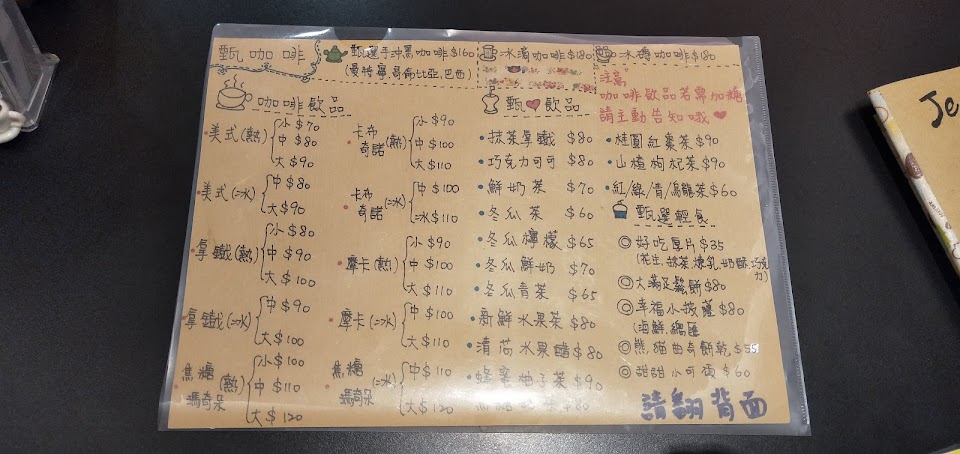 甄咖啡
甄選手沖黑咖啡$160
(曼特寧,哥倫比亞,巴西)
冰滴咖啡$180
冰磚咖啡$180
注意
咖啡飲品若需加糖
請主動告知哦
咖啡飲品
美式(熱) 小$70
中$80
大$90
美式(冰) 中$80
大$90
拿鐵(熱) 小$80
中$90
大$100
拿鐵(冰) 中$90
大$100
焦糖瑪奇朵(熱) 小$100
中$110
大$120
卡布奇諾(熱) 小$90
中$100
大$110
卡布奇諾(冰) 中$100
冰$110
摩卡(熱) 小$90
中$100
大$110
摩卡(冰) 中$100
大$110
焦糖瑪奇朵(冰) 中$110
大$120
甄飲品
抹茶拿鐵 $80
巧克力可可 $80
鮮奶茶 $70
冬瓜茶 $60
冬瓜檸檬 $65
冬瓜鮮奶 $70
冬瓜青茶 $65
新鮮水果茶 $80
清蒔水果醋 $80
蜂蜜柚子茶 $90
黑糖奶茶 $80
桂圓紅棗茶 $90
山楂枸杞茶 $90
紅/綠/青/烏龍茶 $60
甄選輕食
好吃厚片 $35
(花生,抹茶,煉乳,奶酥,巧克力)
大滿足鬆餅 $80
幸福小披薩 $80
(海鮮,總匯
熊.貓曲奇餅乾 $55
甜甜小可頌 $60
請翻背面
Je